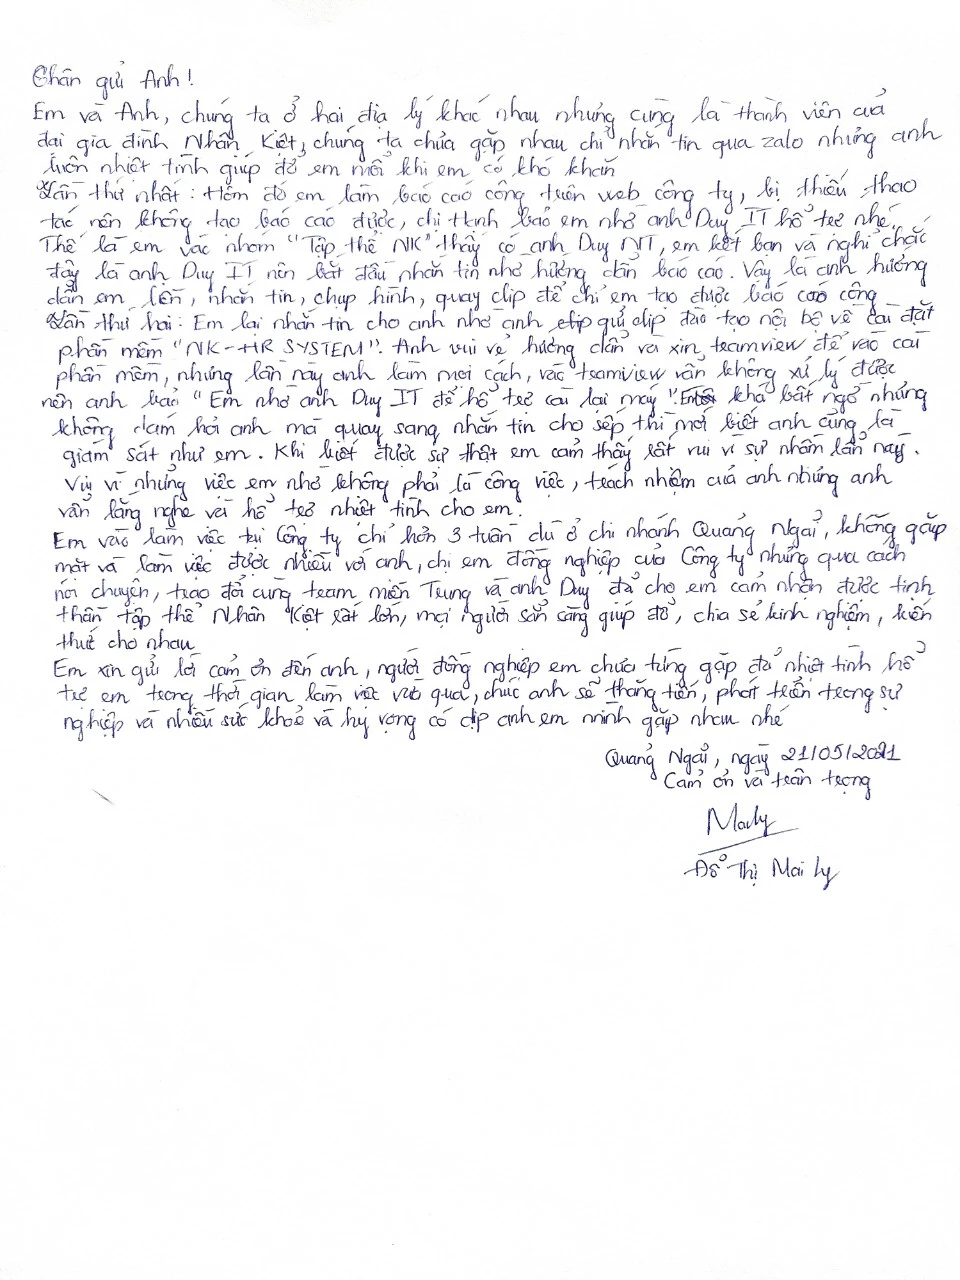 Chân gửi Anh!
Em và Anh, chúng ta ở hai địa lý khác nhau nhưng cùng là thành viên của
đại gia đình Nhân Kiệt, chúng ta chưa gặp nhau chỉ nhắn tin qua zalo nhưng anh
luôn nhiệt tình giúp đỡ em mỗi khi em có khó khăn
Lần thứ nhất: Hôm đó em làm báo cáo công trên web công ty, bị thiếu thao
tác nên không tạo báo cáo được, chị Hạnh bảo em nhờ anh Duy IT hổ trợ nhé.
Thế là em vác nhóm "Tập thể NK" thấy có anh Duy NT, em kết bạn và nghĩ chắc
đây là anh Duy IT nên bắt đầu nhắn tin nhờ hướng dẫn báo cáo. Vậy là anh hướng
dẫn em liền, nhắn tin, chụp hình, quay clip để chỉ em tạo được báo cáo công
Lần thứ hai: Em lại nhắn tin cho anh nhờ anh gửi clip đào tạo nội bộ về cài đặt
phần mềm "NK-HR SYSTEM". Anh vui vẻ hướng dẫn và xin teamview để vào cài
phần mềm, nhưng lần này anh làm mọi cách, vào teamview vẫn không xử lý được
nên anh bảo "Em nhờ anh Duy IT để hổ trợ cài lại máy". Em khá bất ngờ nhưng
không dám hỏi anh mà quay sang nhắn tin cho sếp thì mới biết anh cũng là
giám sát như em. Khi biết được sự thật em cảm thấy rất vui vì sự nhầm lẫn này.
Vui vì những việc em nhờ không phải là công việc, trách nhiệm của anh nhưng anh
vẫn lắng nghe và hổ trợ nhiệt tình cho em.
Em vào làm việc tại Công ty chỉ hơn 3 tuần dù ở chi nhánh Quảng Ngãi, không gặp
mặt và làm việc được nhiều với anh, chị em đồng nghiệp của Công ty nhưng qua cách
nói chuyện, trao đổi cùng team miền Trung và anh Duy đã cho em cảm nhận được tinh
thần tập thể Nhân Kiệt rất lớn, mọi người sẵn sàng giúp đỡ, chia sẻ kinh nghiệm, kiến
thức cho nhau
Em xin gửi lời cảm ơn đến anh, người đồng nghiệp em chưa từng gặp đã nhiệt tình hổ
trợ em trong thời gian làm việc vừa qua, chúc anh sẽ thăng tiến, phát triển trong sự
nghiệp và nhiều sức khoẻ và hy vọng có dịp anh em mình gặp nhau nhé
Quảng Ngãi, ngày 21/05/2021
Cảm ơn và trân trọng
Maily
Đỗ Thị Mai Ly